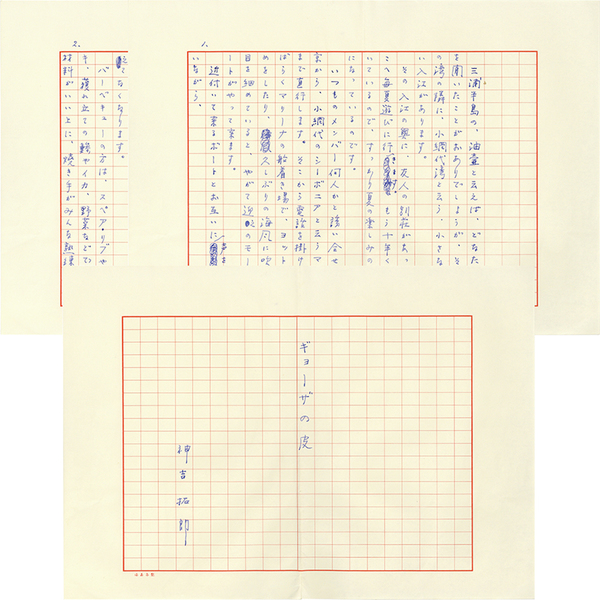 1.
三浦半島の、油壷と云えば、どなた
を聞いたことがおありでしょうが、そ
の湾の隣に、小網代湾と云う、小さな
い入江があります。
その入江の奥に、友人の別荘があっ
こへ毎夏遊びに行きます。もう十年く
いているので、すっかり夏の楽しみの
になっているのです。
いつものメンバー何人かと誘い合せ
京から、小網代のシーボニアと云うマ
まで直行します。そこから電話を掛け
ばらくマリーナの船着き場で、ヨット
めをしたり、久しぶりの海風に吹
目を細めていると、やがて迎えのモー
ートがやって来ます。
近付いて来るボートとお互いに声を
いながら、
2.
くなります。
バーベキューの方は、スペア・リブや
キ、獲れ立ての鯵やイカ、野菜などで
材料がいい上に、焼き手がみんな熟練
ギョーザの皮
神吉拓郎